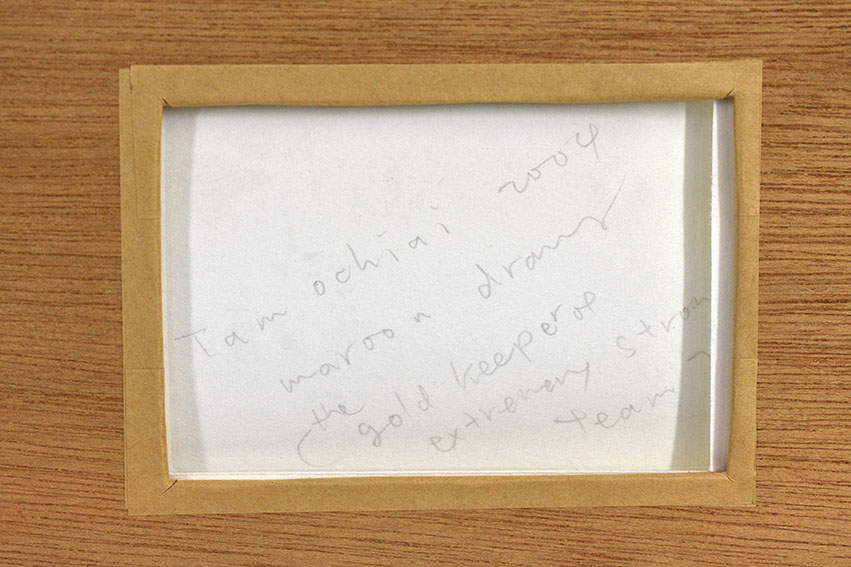 Tam ochiai 2004
maroon drawy
(the
gold keeper of
extremery stron
team)